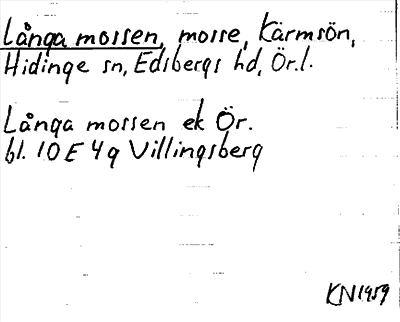 Långa mossen, mosse, Kärmsön,
Hidinge sn, Edsbergs hd, Ör.l.
Långa mossen ek Ör.
bl. 10E 4g Villingsberg
KN1959